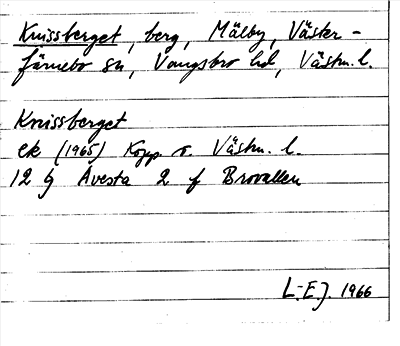 Knissberget, berg, Mälby, Väster-
färnebo sn, Vangsbro hd, Västm. l.
Knissberget
ek (1965) Kopp. o. Västm. l.
12 g Avesta 2 f Brovallen
L-E.J. 1966